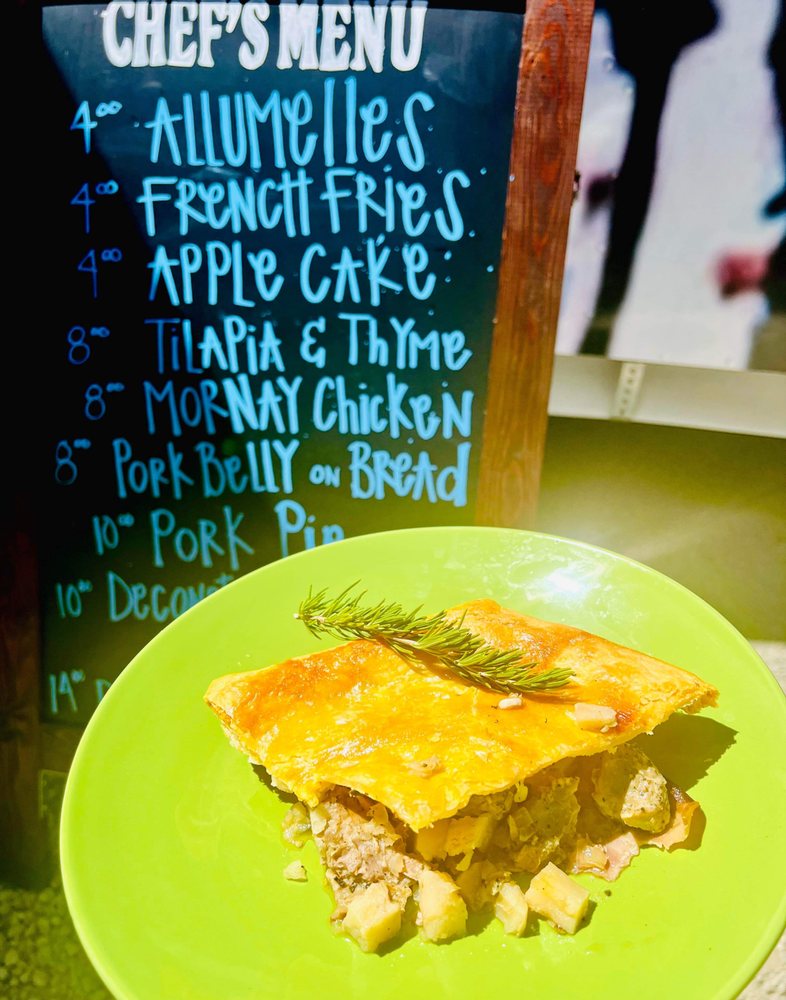 CHEF'S MENU
4⁰⁰ ALLUMelles
4⁰⁰ FRENCH FRieS
4⁰⁰ APPLe CAKe
8⁰⁰ TiLAPiA & ThYMe
8⁰⁰ MORNAY ChickeN
8⁰⁰ PoRk BeLLY oN BReAd
10⁰⁰ PoRk Pie
10⁰⁰
14⁰⁰